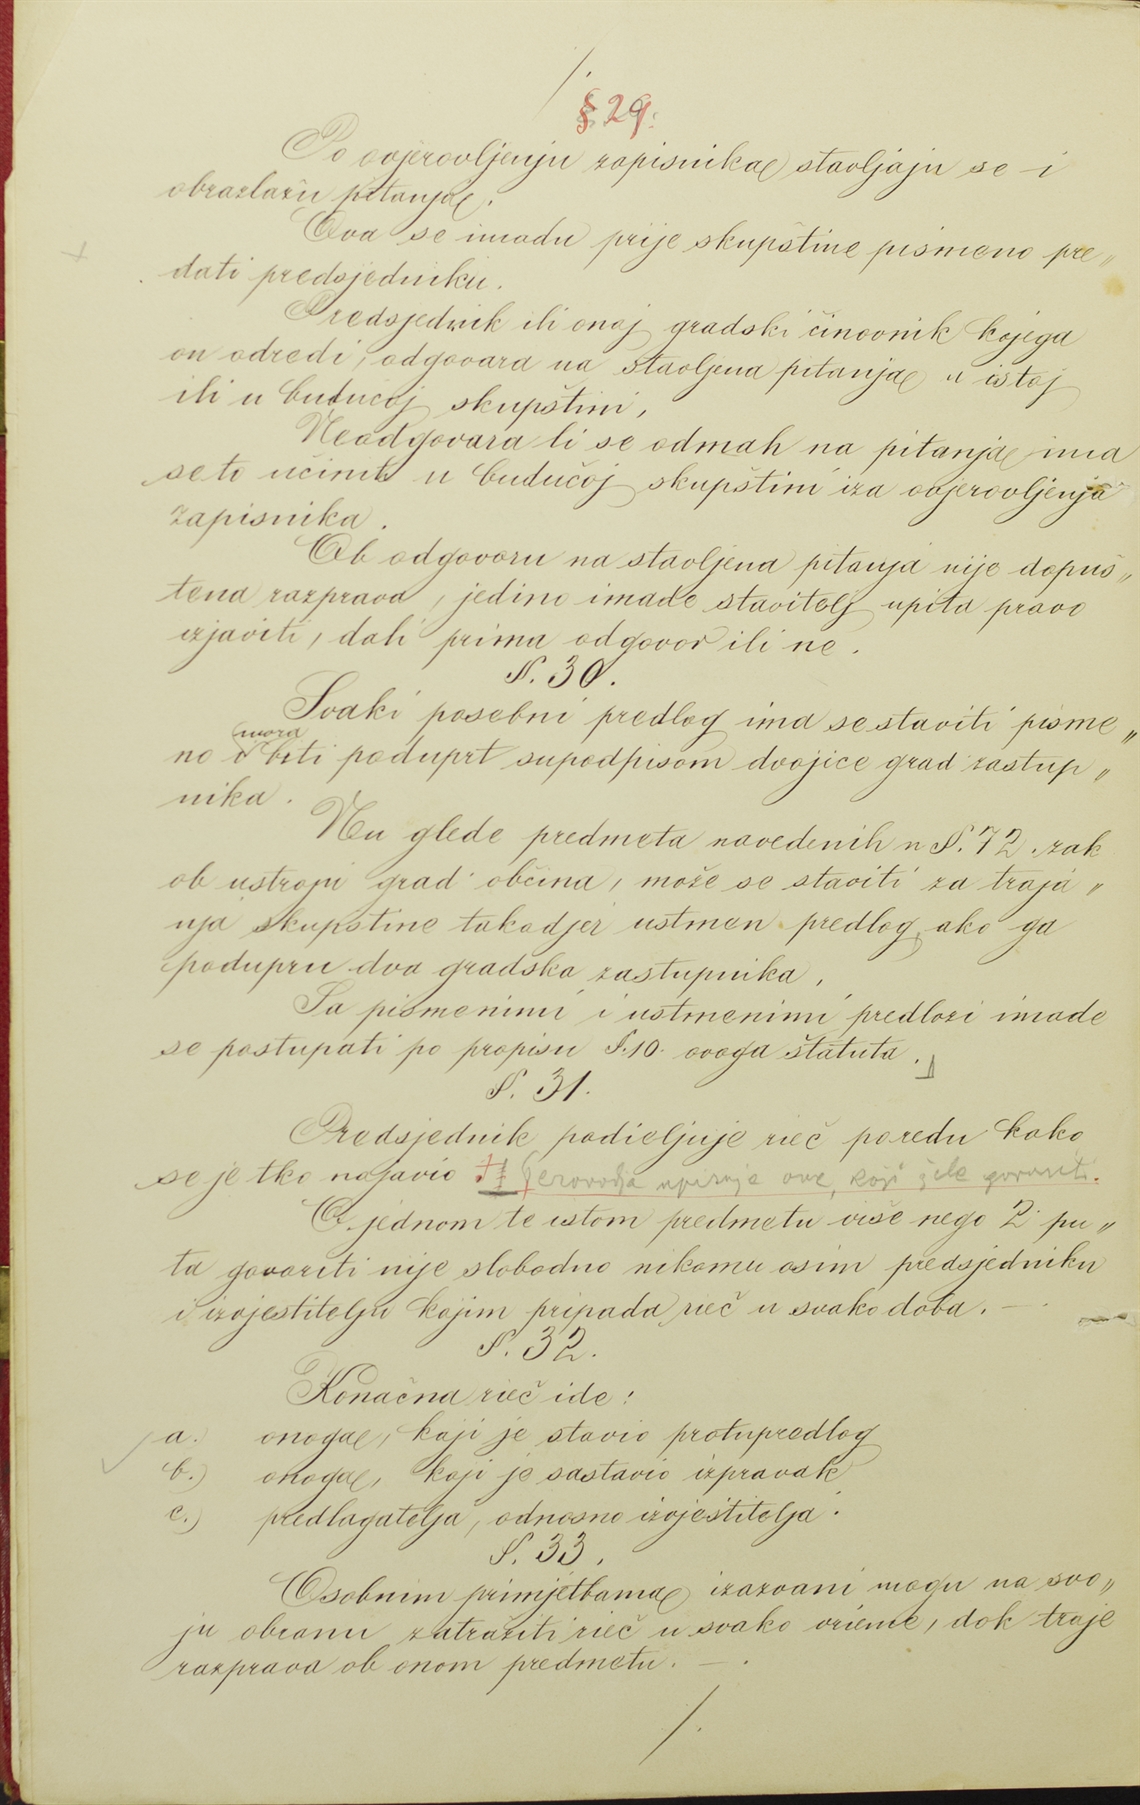 § 29.
Po ovjerovljenju zapisnika stavljaju se i
obrazlažu pitanja.
Ova se imadu prije skupštine pismeno pre„
dati predsjedniku.
Predsjednik ili onaj gradski činovnik kojega
on odredi, odgovara na stavljena pitanja u istoj
ili u budućoj skupštini,
Neodgovara li se odmah na pitanja ima
se to učiniti u budućoj skupštini iza ovjerovljenja
zapisnika.
Ob odgovoru na stavljena pitanja nije dopuš„
tena razprava, jedino imade stavitelj upita pravo
izjaviti, dali prima odgovor ili ne.
§. 30.
Svaki posebni predlog ima se staviti pisme„
mora
no i biti poduprt supodpisom dvojice grad zastup„
nika.
Nu glede predmeta navedenih u §. 72. zak
ob ustroju grad. občina, može se staviti za traja„
nja skupstine takodjer ustmen predlog, ako ga
podupru dva gradska zastupnika,
Sa pismenimi i ustmenimi predlozi imade
se postupati po propisu §.10. ovoga štatuta.
§. 31.
Predsjednik podieljuje rieč poredu kako
se je tko najavio. Perovodja upisuje one, koji žele govoriti.
O jednom te istom predmetu više nego 2 pu„
ta govoriti nije slobodno nikomu osim predsjedniku
i izvjestitelju kojim pripada rieč u svako doba. —
§. 32.
Konačna rieč ide:
a. onoga, koji je stavio protupredlog
b.) onoga, koji je sastavio izpravak
c.) predlagatelja, odnosno izvjestitelja.
§. 33.
Osobnim primjetbama izazvani mogu na svo„
ju obranu zatražiti rieč u svako vrieme, dok traje
razprava ob onom predmetu. —.